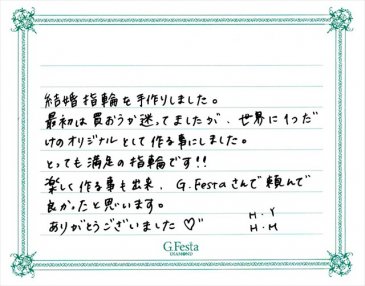 結婚指輪を手作りしました。
最初は買おうか迷ってましたが、世界に1つだ
けのオリジナルとして作る事にしました。
とっても満足の指輪です!!
楽しく作る事も出来、G.Festaさんで頼んで
良かったと思います。
ありがとうございました♡〃
H.Y
H.M
G.Festa
DIAMOND